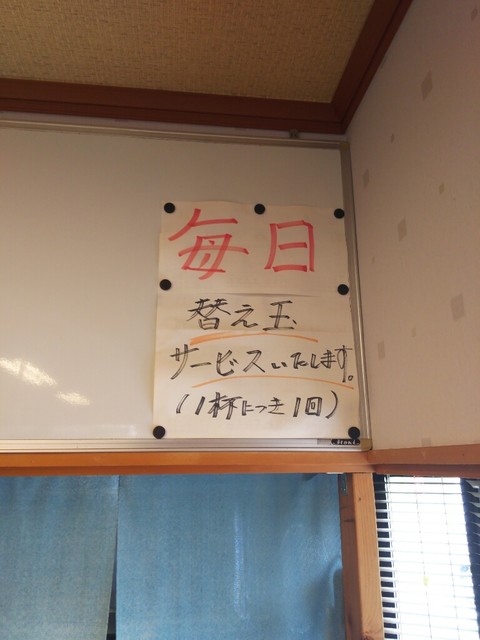 毎日
替え玉
サービスいたします。
(1杯につき1回)